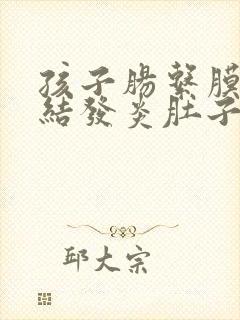 孩子腸繫膜
結發炎肚子
邱大宗